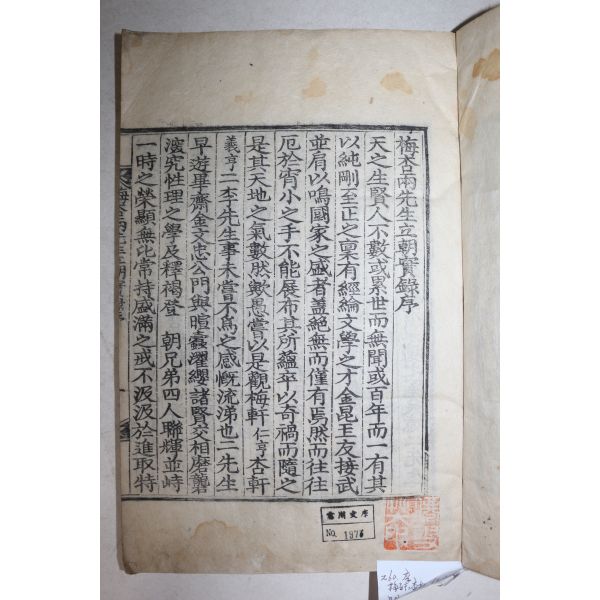 梅杏兩先生立朝實錄序
天之生賢人不數或累世而無聞或百年而一有其
以純剛至正之稟有經綸文學之才金昆玉友接武
並肩以鳴國家之盛者盖絕無而僅有焉然而往往
厄於宵小之手不能展布其所蘊卒以奇禍而隨之
是其天地之氣數然歟愚嘗以是觀梅軒仁亨杏軒
義亨二李先生事未嘗不爲之感慨流涕也二先生
早遊畢齋金文忠公門與暄蠹濯纓諸賢交相磨礱
濱究性理之學及釋褐登 朝兄弟四人聯輝並峙
一時之榮顯無比常持盛滿之戒不汲汲於進取特
No. 1976